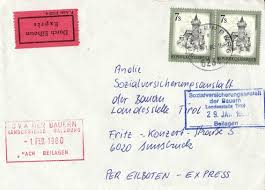 Durch Eilboten
Exprès
7s
7s
REPUBLIK ÖSTERREICH
REPUBLIK ÖSTERREICH
An die
Sozialversicherungsanstalt
der Bauern
Landesstelle Tirol
Fritz-Konzert-Straße 5
6020 Innsbruck
PER EILBOTEN - EXPRESS
SVA DER BAUERN
LANDESSTELLE SALZBURG
-1 FEB. 1980
Sozialversicherungsanstalt
der Bauern
Landesstelle Tirol
29. JAN.
Beilagen
BEILAGEN